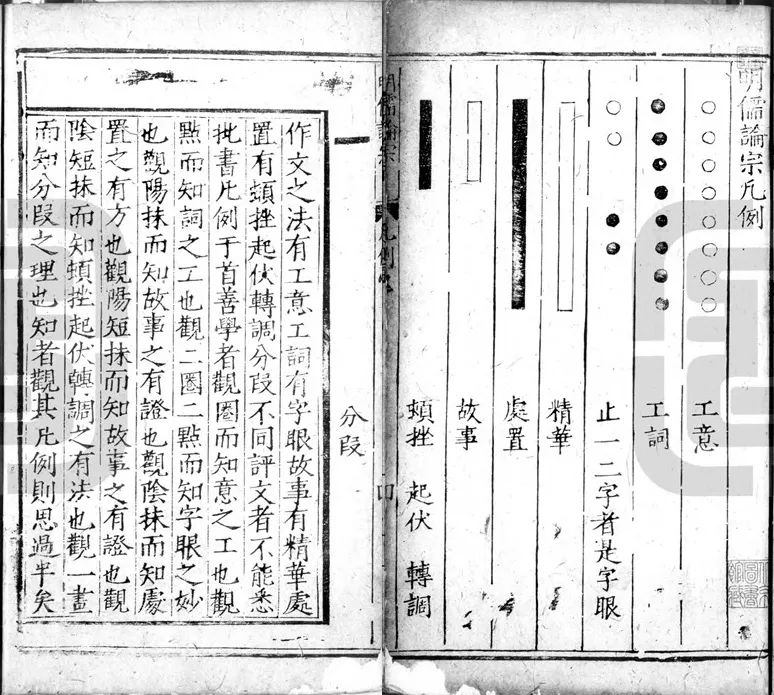 明儒論宗凡例
工意
工詞
止一二字者是字眼
精華
處置
故事
頓挫 起伏 轉調
明儒論宗 凡例
分段
作文之法有工意工詞有字眼故事有精華處
置有頓挫起伏轉調分段不同評文者不能悉
批書凡例于首善學者觀圈而知意之工也觀
點而知詞之工也觀二圈二點而知字眼之妙
也觀陽抹而知故事之有證也觀陰抹而知處
置之有方也觀陽短抹而知故事之有證也觀
陰短抹而知頓挫起伏轉調之有法也觀一畫
而知分段之理也知者觀其凡例則思過半矣